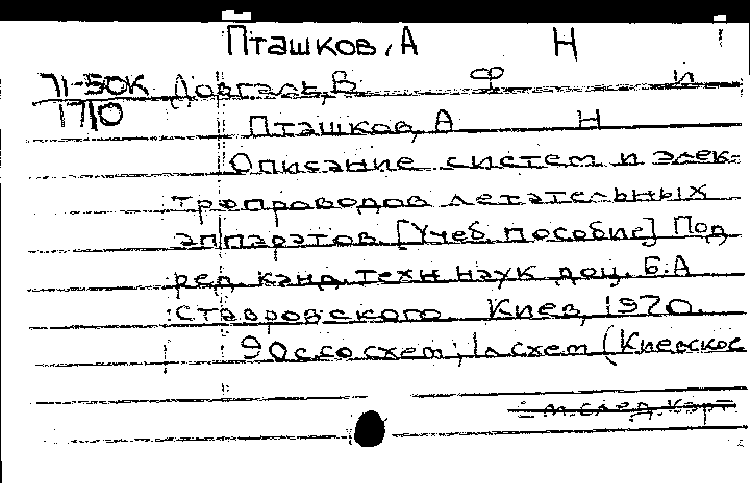 Пташков, А Н
71-50К Довгаль, В Ф и
1710
Пташков, А Н
Описание систем и элек-
тропроводов летательных
аппаратов. [Учеб. пособие] Под
ред. канд. техн наук доц. Б.А
Ставровского. Киев, 1970.
90с со схем; 1л схем (Киевское
см. след. карт